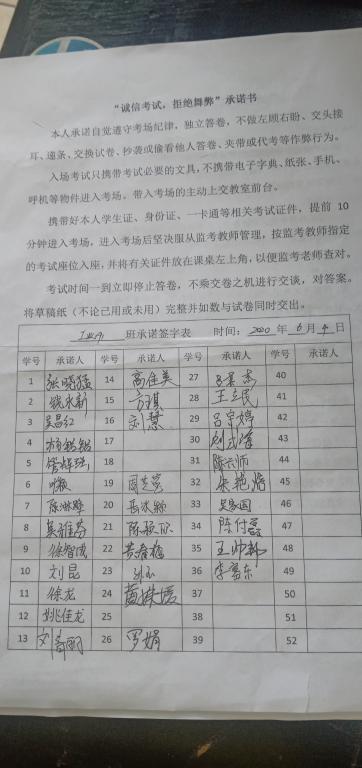 “诚信考试，拒绝舞弊”承诺书
本人承诺自觉遵守考场纪律，独立答卷，不做左顾右盼、交头接
耳、递条、交换试卷、抄袭或偷看他人答卷、夹带或代考等作弊行为。
入场考试只携带考试必要的文具，不携带电子字典、纸张、手机、
呼机等物件进入考场。带入考场的主动上交教室前台。
携带好本人学生证、身份证、一卡通等相关考试证件，提前 10
分钟进入考场，进入考场后坚决服从监考教师管理，按监考教师指定
的考试座位入座，并将有关证件放在课桌左上角，以便监考老师查对。
考试时间一到立即停止答卷，不乘交卷之机进行交谈，对答案。
将草稿纸（不论已用或未用）完整并如数与试卷同时交出。
班承诺签字表 时间：2020 年 6 月 4 日
学号 承诺人 学号 承诺人 学号 承诺人 学号 承诺人
1 张晓猛 14 高佳美 27 40
2 钱永新 15 方琪 28 王立民 41
3 吴昌红 16 刘慧 29 吕宗婷 42
4 17 30 43
5 18 31 44
6 19 32 朱艳 45
7 陈琳 20 33 吴家国 46
8 21 陈毅 34 陈付 47
9 徐智成 22 黄春梅 35 王帅 48
10 刘昆 23 36 李富东 49
11 徐龙 24 黄 37 50
12 姚佳龙 25 38 51
13 刘 26 罗娟 39 52